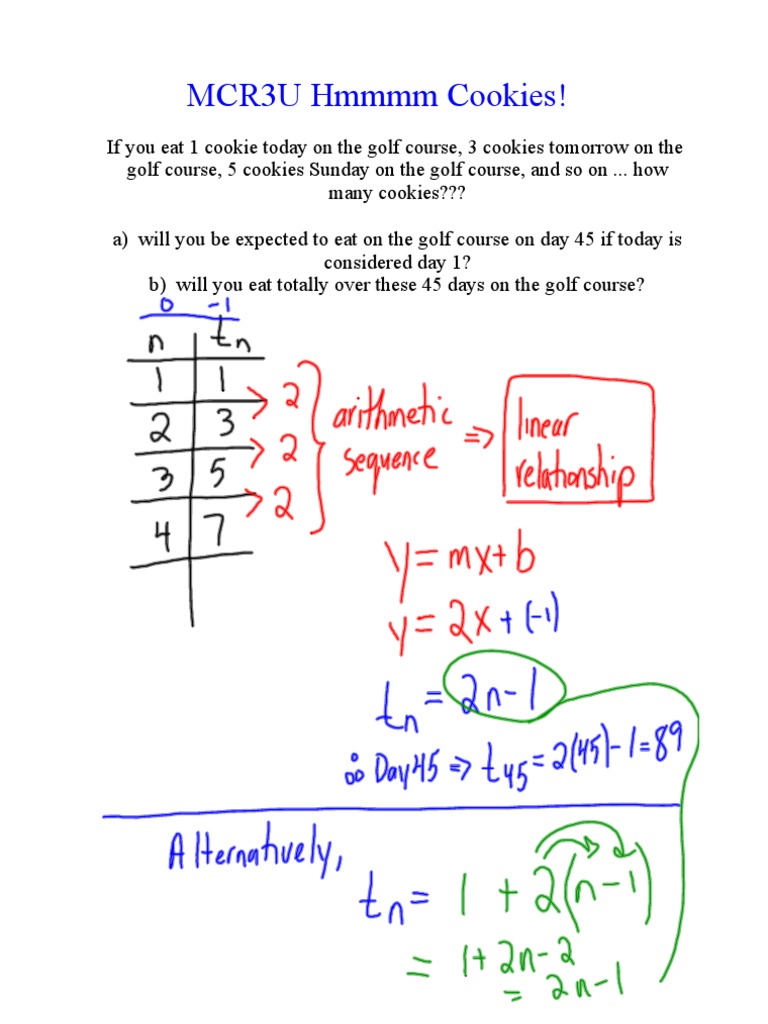 MCR3U Hmmmm Cookies!
If you eat 1 cookie today on the golf course, 3 cookies tomorrow on the
golf course, 5 cookies Sunday on the golf course, and so on ... how
many cookies???
a) will you be expected to eat on the golf course on day 45 if today is
considered day 1?
b) will you eat totally over these 45 days on the golf course?
0 -1
n tn
1 1
2 3
3 5
4 7
2
2
2
arithmetic
sequence
⇒
linear
relationship
y = mx + b
y = 2x + (-1)
tn = 2n-1
∴ Day 45 ⇒ t45 = 2(45)-1 = 89
Alternatively,
tn = 1 + 2(n-1)
2
= 1+2n-2
= 2n-1